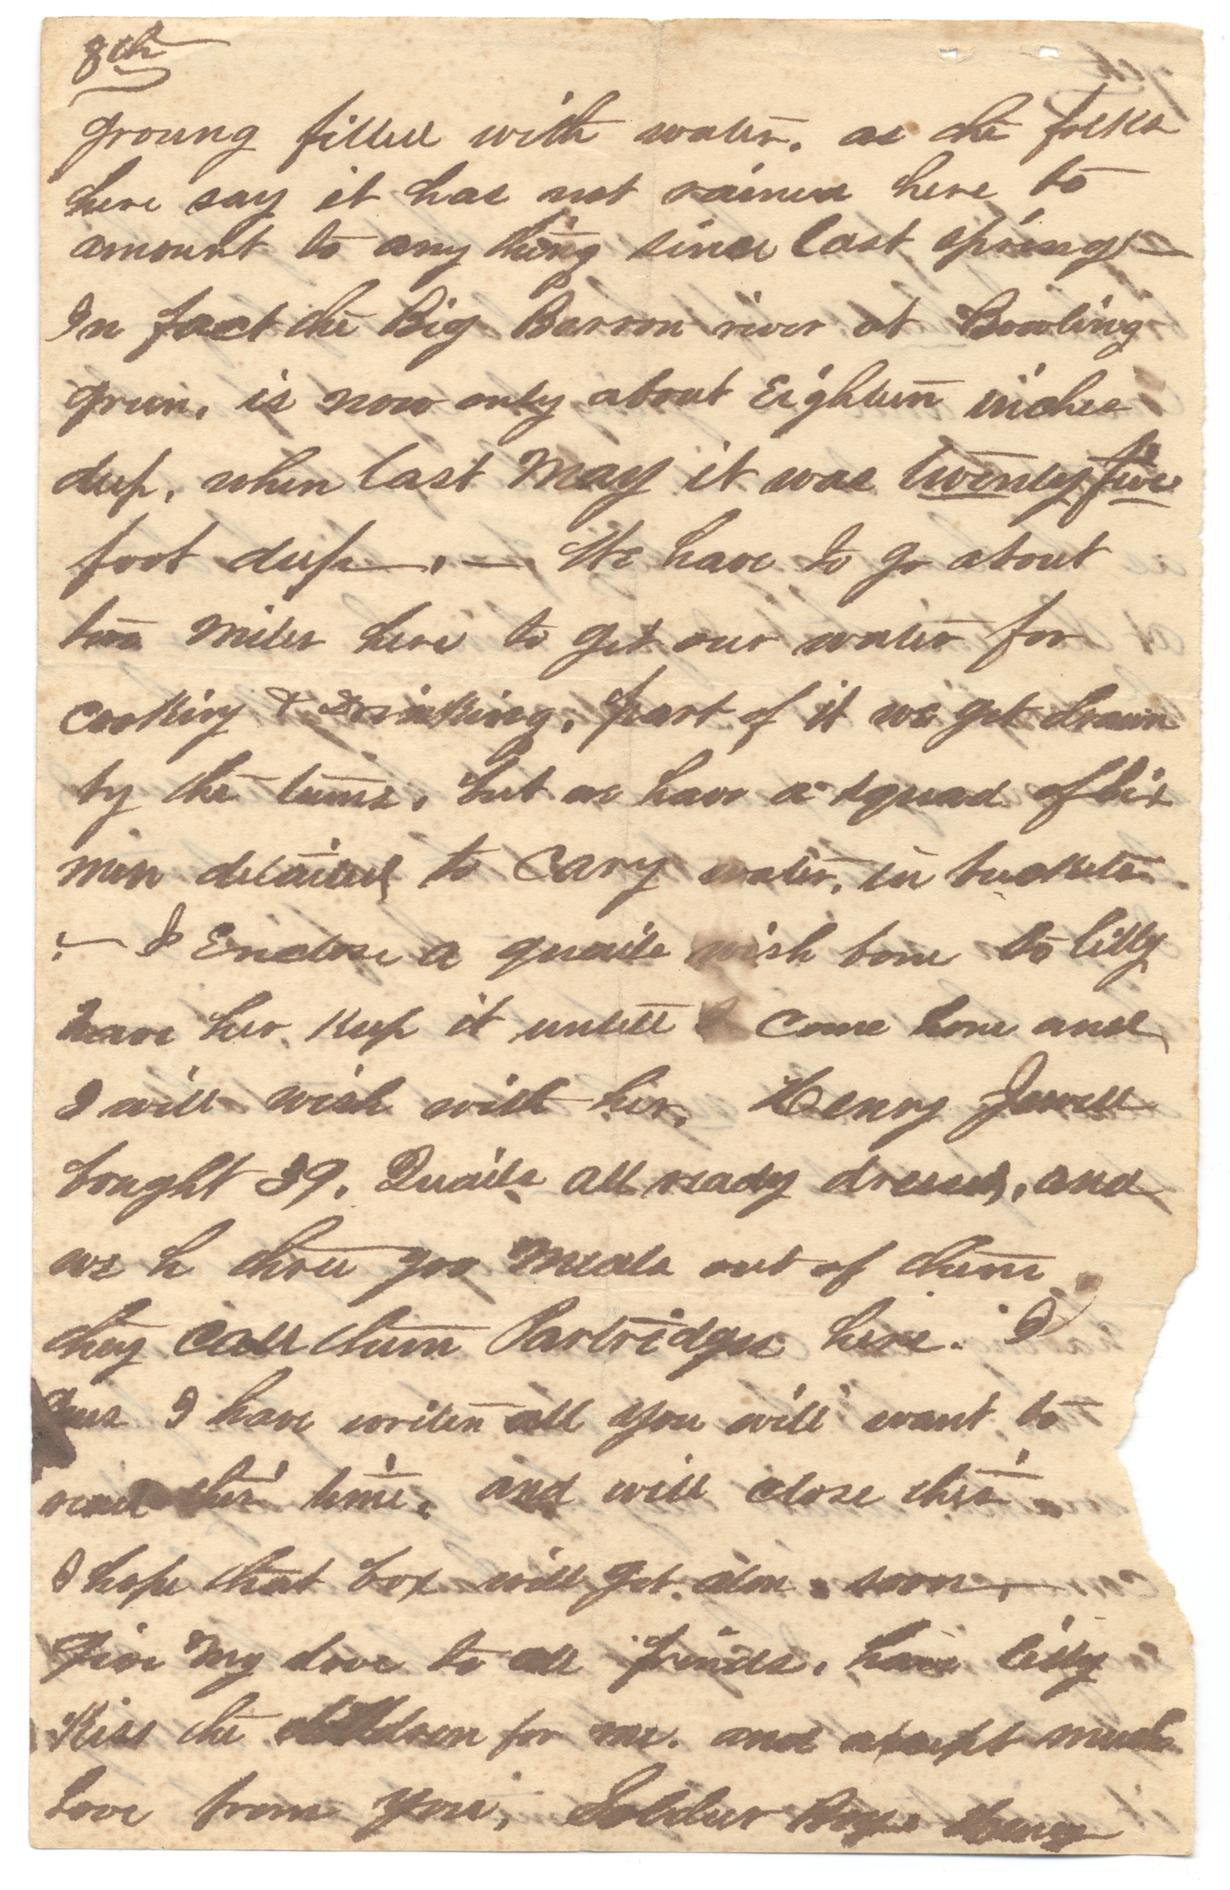 8th
groung filled with water, as the folks
here say it has not rained here to
amount to any thing since last spring —
In fact the Big Barron river at Bowling
green, is now only about Eighteen inches
deep, when last May it was twenty five
foot deep. — We have to go about
two miles here to get our water for
cooking & drinking, part of it we get drawn
by the teams, but we have a squad of six
men detailed to Cary water, in buckets.
— I Enclose a quails wish bone to lilly
have her keep it untill I come home and
I will wish with her. Henry Jewell
bought 39. Quails all ready dressed, and
we h three goo meals out of them
they call them Partridges here. I
gues I have writen all you will want to
read this time. and will close this
I hope that box will get alon soon.
Give my love to all friends, have lilly
Kiss the children for me. and accept much
Love from your, Soldier Boy. Henry